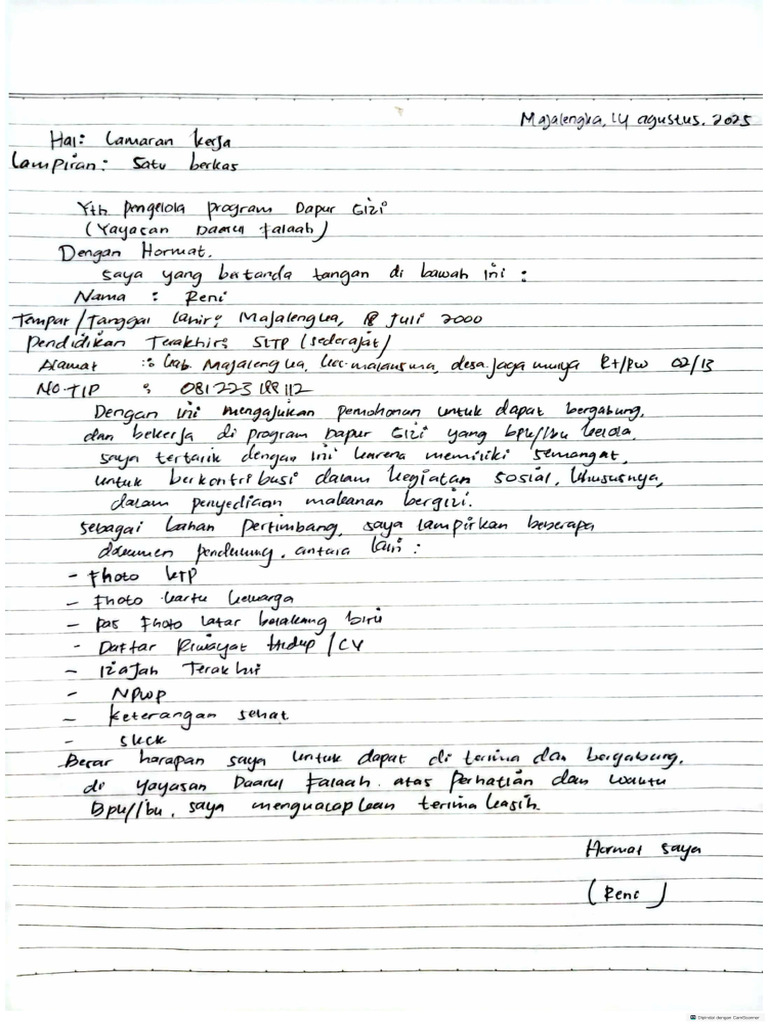 Majalengka, 14 agustus. 2025
Hal: Lamaran kerja
Lampiran: Satu berkas
Yth pengelola program Dapur Gizi
(Yayasan Daarul falaah)
Dengan Hormat.
saya yang bertanda tangan di bawah ini :
Nama : Reni
Tempat/Tanggal Lahir: Majalengka, 18 Juli 2000
Pendidikan Terakhir: SLTP (sederajat)
Alamat : kab. Majalengka, kec. malausma, desa. jagamulya Rt/Rw 02/13
NO. TLP :
Dengan ini mengajukan pemohonan untuk dapat bergabung.
dan bekerja di program Dapur Gizi yang bpk/Ibu kelola.
saya tertarik dengan ini karena memiliki semangat,
untuk berkontribusi dalam kegiatan sosial, khususnya,
dalam penyediaan makanan bergizi.
sebagai bahan pertimbang, saya lampirkan beberapa
dokumen pendukung. antara lain :
- Fhoto KTP
- Fhoto kartu keluarga
- pas Fhoto latar belakang biru
- Daftar Riwayat Hidup / CV
- Izajah Terakhir
- NPWP
- keterangan sehat
- skck
Besar harapan saya untuk dapat di terima dan bergabung.
di yayasan Daarul falaah. atas perhatian dan waktu
Bpk/Ibu, saya mengucapkan terima kasih.
Hormat saya
(Reni)
Dipindai dengan CamScanner